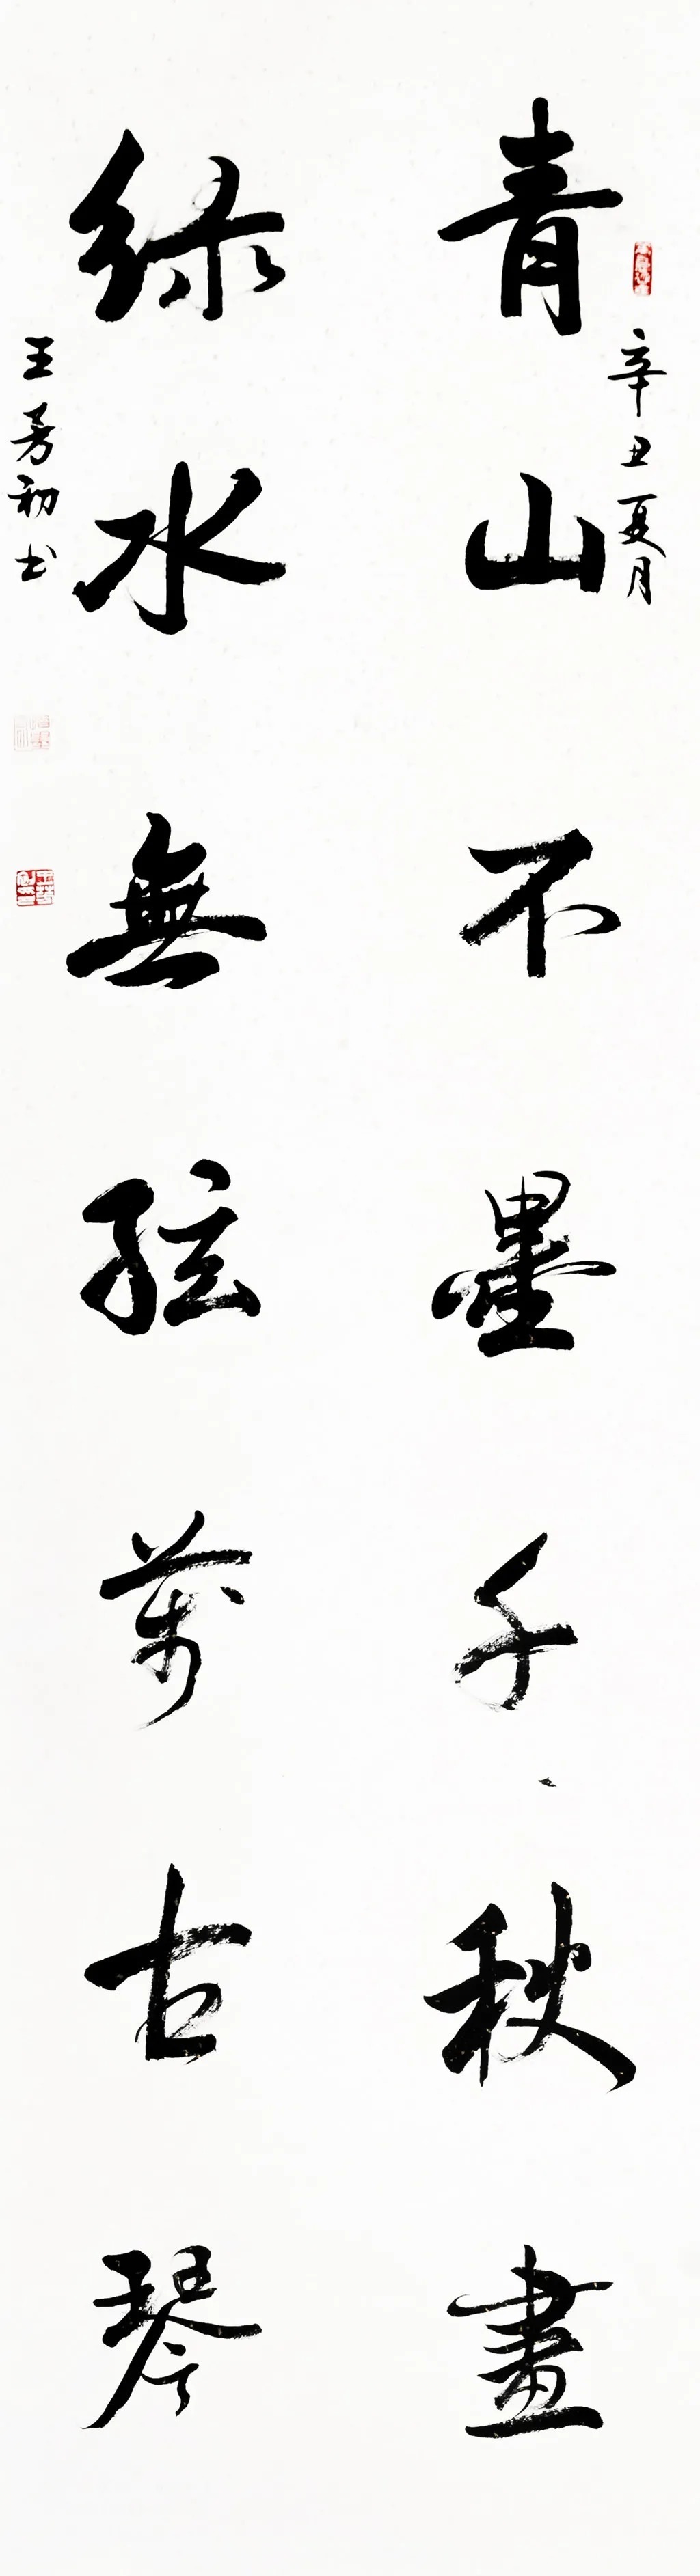 青山不墨千秋畫
辛丑夏月
綠水無弦萬古琴
王芳初书